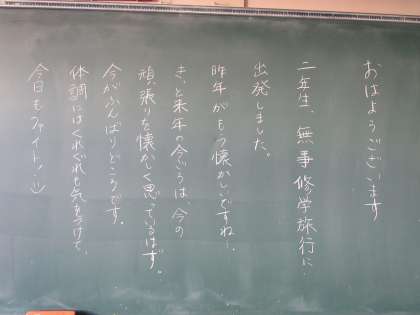 おはようございます
二年生、無事修学旅行に
出発しました。
昨年がもう懐かしいですね!
きっと来年の今ごろは、今の
頑張りを懐かしく思っているはず。
今がふんばりどころです。
体調にはくれぐれも気をつけて、
今日もファイト!:)